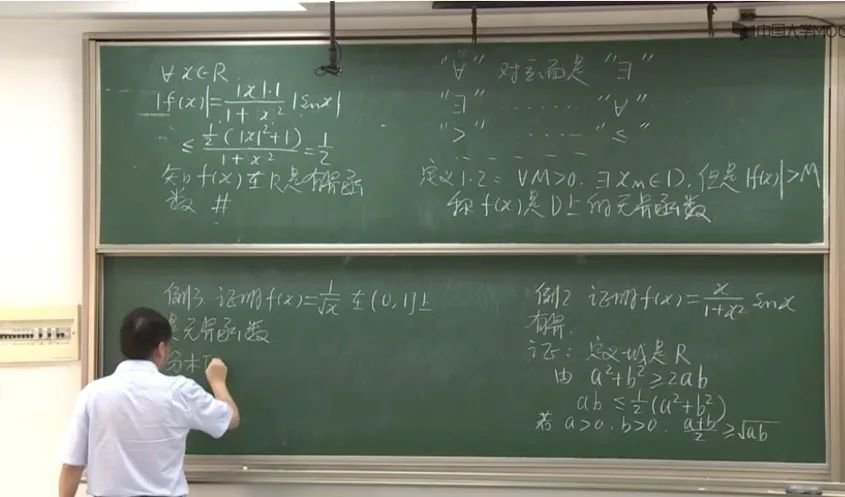 中国大学MOO
∀ x∈R
|f(x)|=\frac{|x|·1}{1+x²}|sinx|
≤\frac{\frac{1}{2}(|x|²+1)}{1+x²}=\frac{1}{2}
知 f(x)在R是有界函
数 #
"∀" 对立面是 "∃"
"∃" ...... "∀"
"<" ...... "≥"
定义1.2: ∀M>0. ∃x_M∈D, 但是|f(x)|>M
称f(x)是D上的无界函数
例3 证明f(x)=\frac{1}{\sqrt{x}}在(0,1]上
是无界函数
分析
例2 证明f(x)=\frac{x}{1+x²}sinx
有界.
证: 定义域是R
由 a²+b²≥2ab
ab≤\frac{1}{2}(a²+b²)
若 a>0. b>0. \frac{a+b}{2}≥\sqrt{ab}